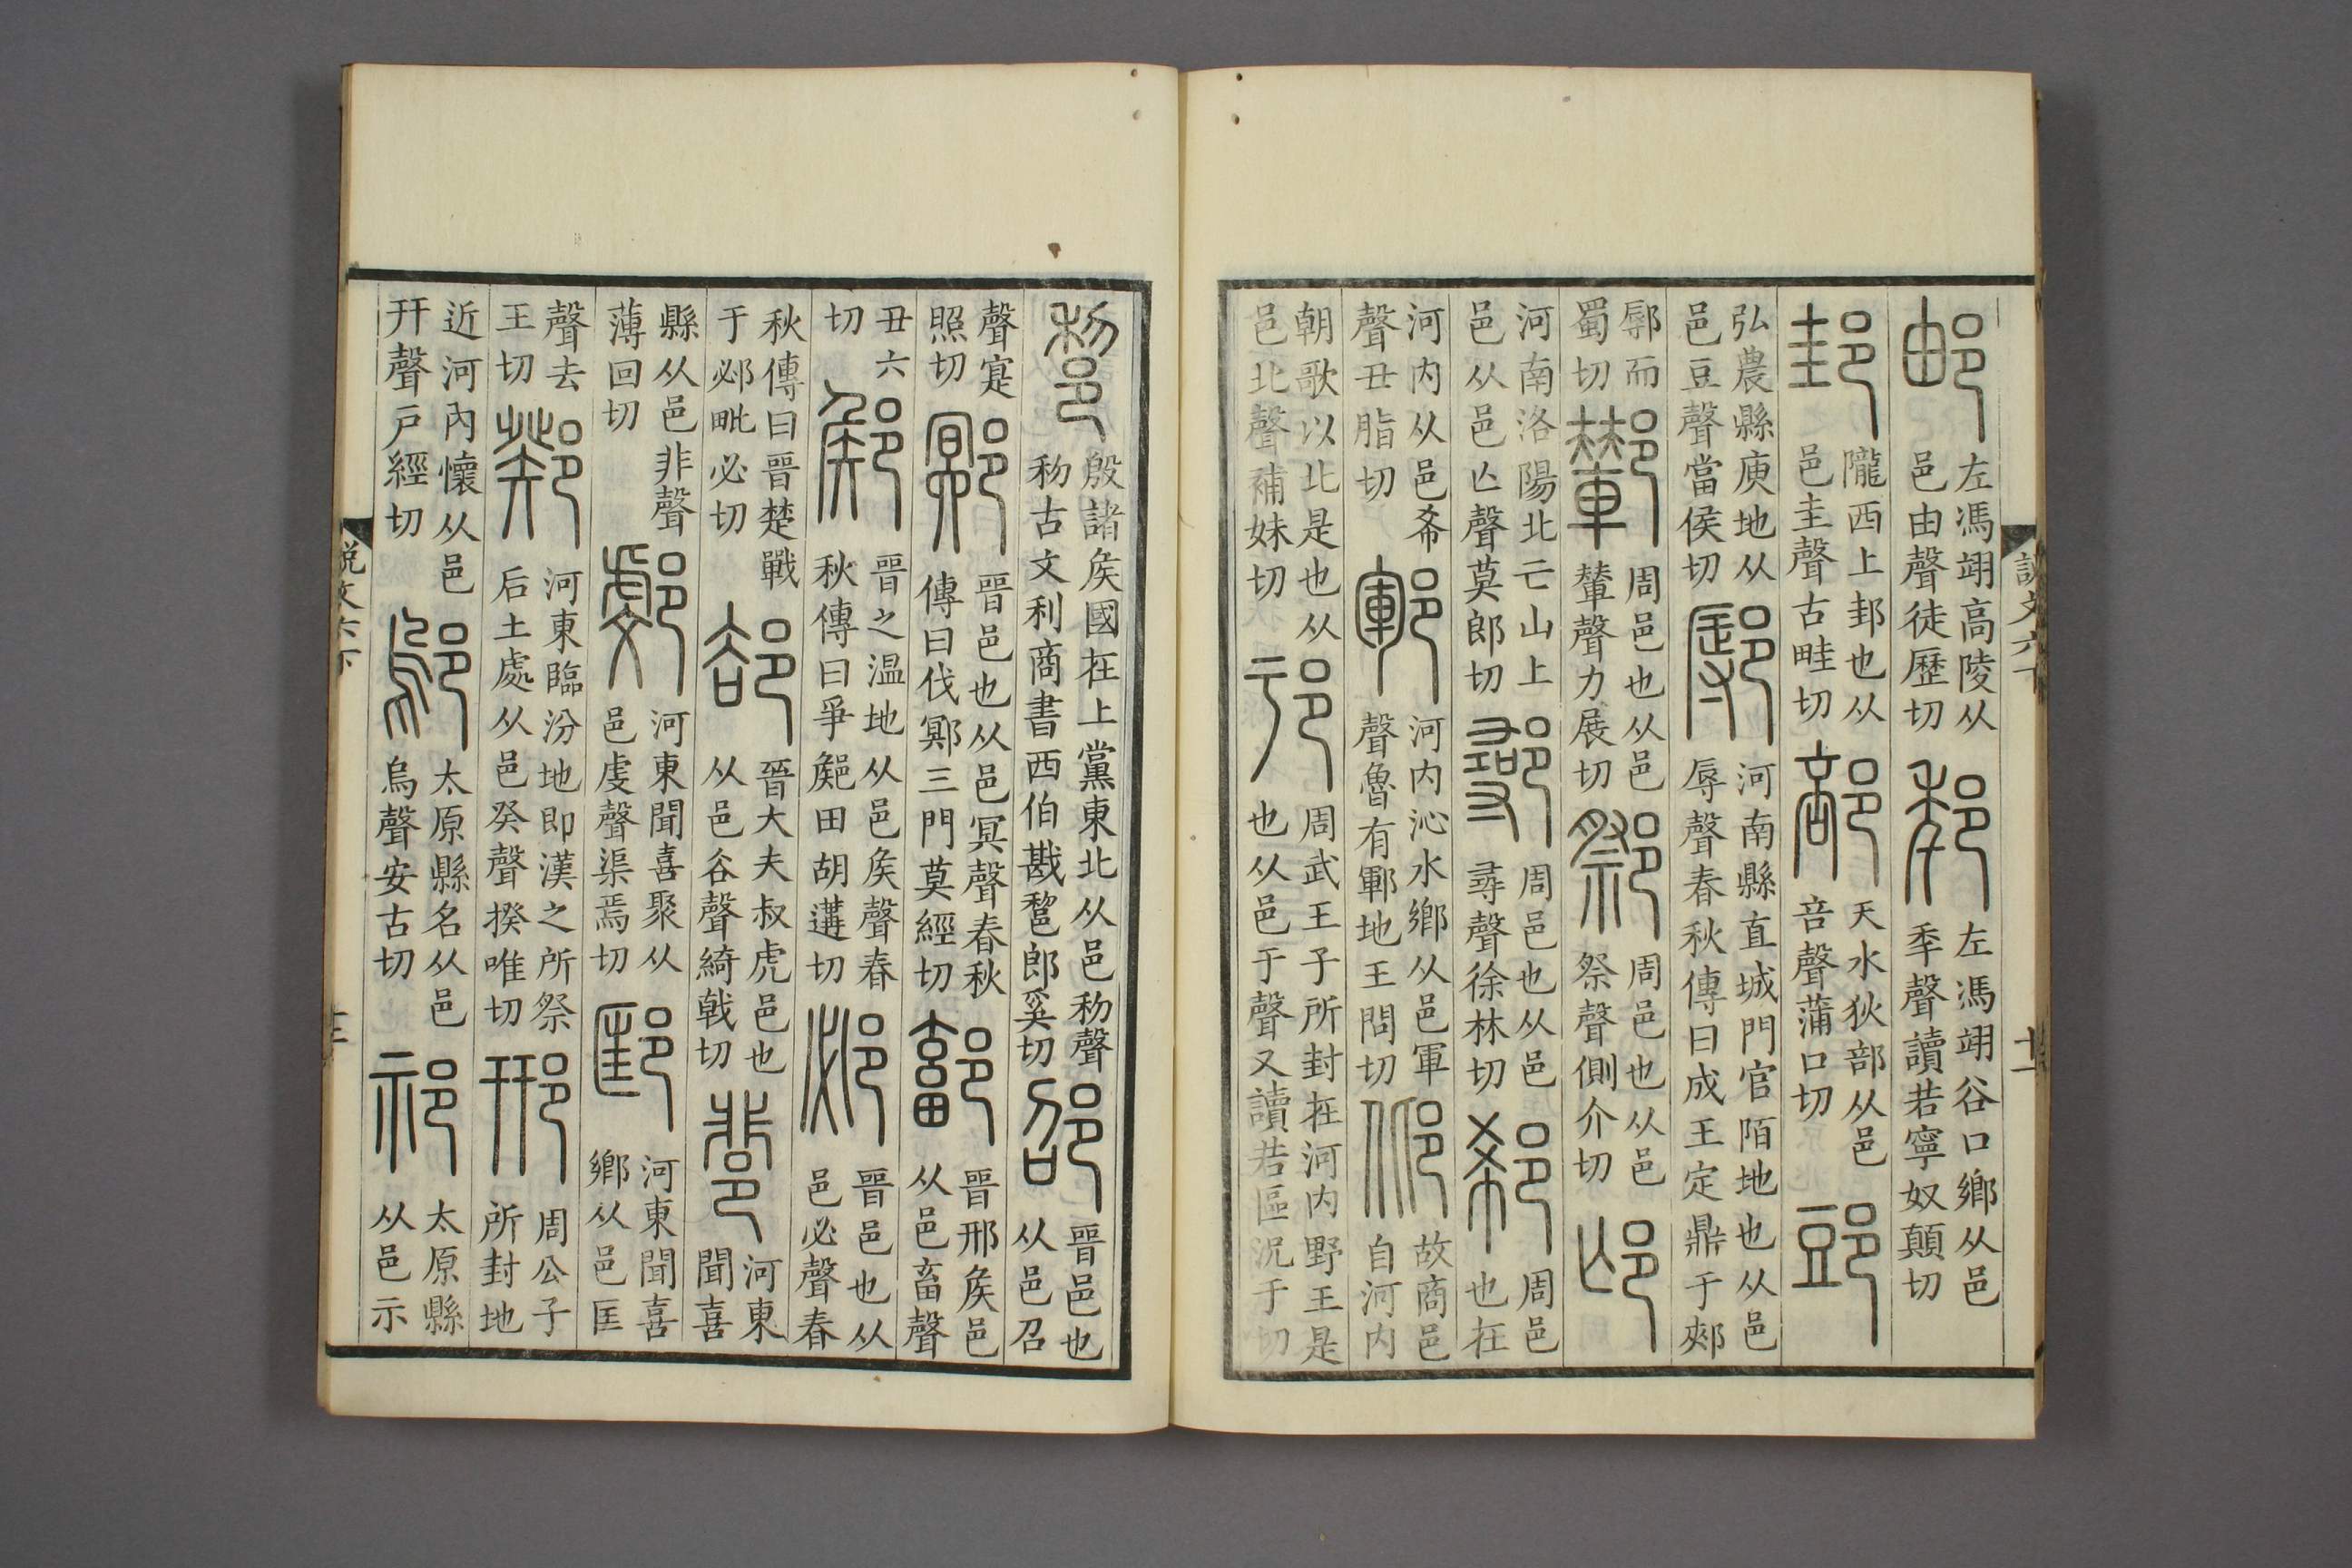 邮左馮翊高陵从邑由聲徒歷切左馮翊谷口鄉从邑秊聲讀若寧奴顛切
邽隴西上邽也从邑圭聲古畦切部天水狄部从邑咅聲蒲口切郖
弘農縣庾地从邑豆聲當侯切鄏河南縣直城門官陌地也从邑辱聲春秋傳曰成王定鼎于郟
鄏而蜀切鄻周邑也从邑輦聲力展切周邑也从邑祭聲側介切邙
河南洛陽北亡山上邑从邑亾聲莫郎切鄩周邑也从邑尋聲徐林切郗周邑也在
河内从邑希聲丑脂切鄆河内沁水鄉从邑軍聲魯有鄆地王問切邶故商邑自河内
朝歌以北是也从邑北聲補妹切邘周武王子所封在河内野王是也从邑于聲又讀若區況于切
說文六下
十一
殷諸矦國在上黨東北从邑𥝢聲𥝢古文利商書西伯戡郎奚切邵晉邑也从邑召
聲寔照切鄍晉邑也从邑冥聲春秋傳曰伐鄍三門莫經切鄐晉邢矦邑从邑畜聲
丑六切鄇晉之温地从邑矦聲春秋傳曰爭鄇田胡遘切邲晉邑也从邑必聲春
秋傳曰晉楚戰于邲毗必切郤晉大夫叔虎邑也从邑谷聲綺戟切河東聞喜
縣从邑非聲薄回切河東聞喜聚从邑虔聲渠焉切邼河東聞喜鄉从邑匡
聲去王切鄈河東臨汾地即漢之所祭后土處从邑癸聲揆唯切邢周公子所封地
近河內懷从邑幵聲戶經切鄔太原縣名从邑烏聲安古切祁太原縣从邑示
說文六下
十二